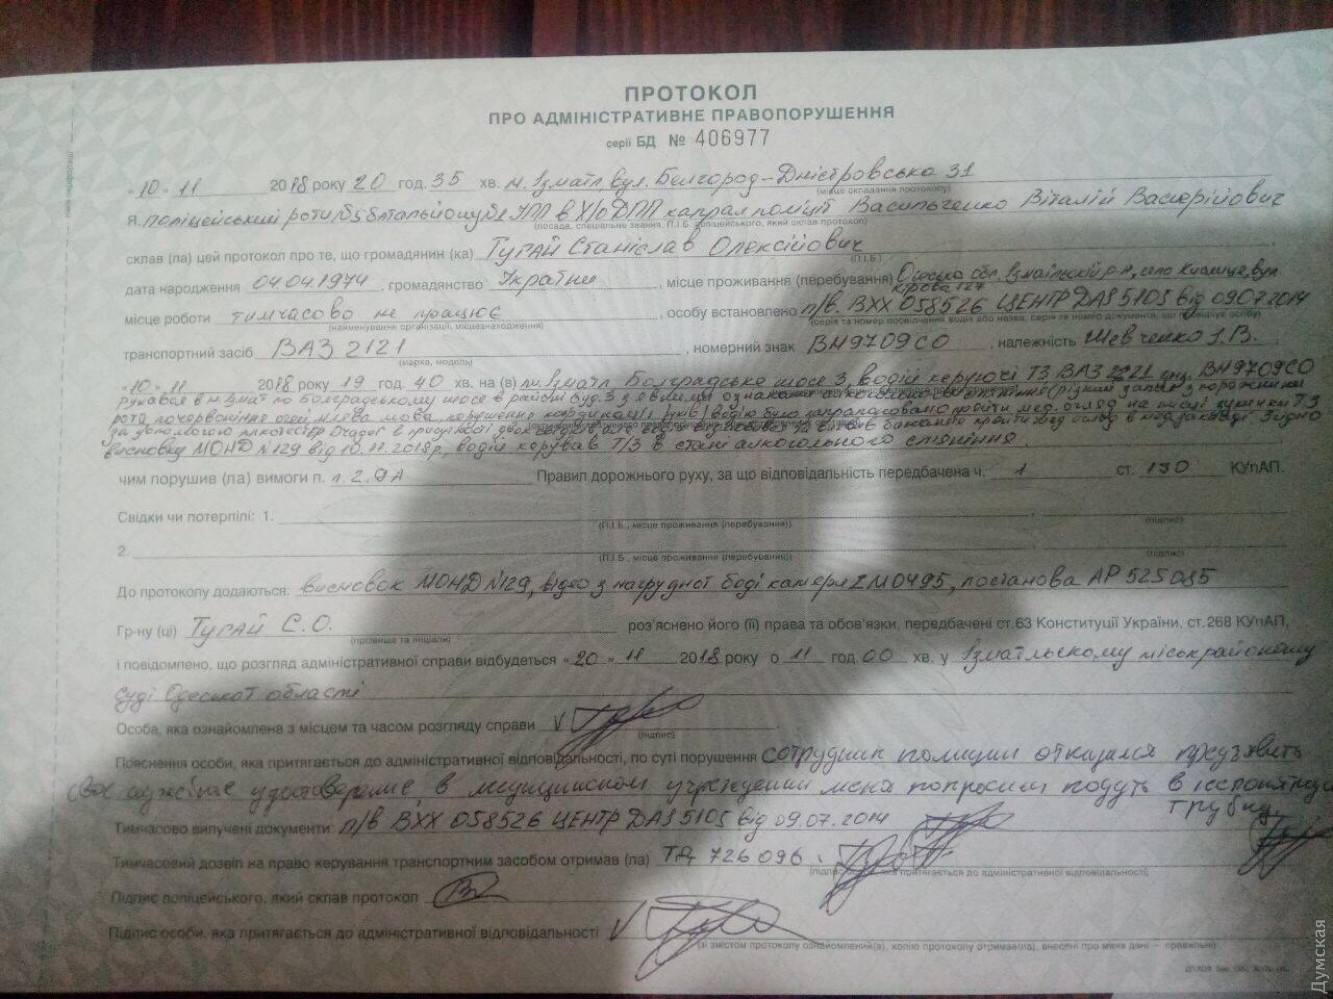 ПРОТОКОЛ
ПРО АДМІНІСТРАТИВНЕ ПРАВОПОРУШЕННЯ
серії БД № 406977
"10" 11 2018 року 20 год. 35 хв. м. Ізмаїл вул. Белгород-Дністровська 31
(місце складання протоколу)
Я, поліцейський роти УПП в Х/о ДПП капрал поліції Васильченко Віталій
(посада, спеціальне звання, П.І.Б. поліцейського, який склав протокол)
склав (ла) цей протокол про те, що громадянин (ка) Тугай Станіслав Олексійович
(П.І.Б.)
дата народження 04.04.1974, громадянство Україна, місце проживання (перебування) Одеська обл. Ізмаїльський р-н, село Кислиця, вул
Кірова 127
місце роботи тимчасово не працює, особу встановлено п/в. ВХХ 058526 ЦЕНТР ДАІ 5105 від 09.07.2014
(найменування організації, місцезнаходження)
транспортний засіб ВАЗ 2121, номерний знак ВН9709СО, належність Шевченко І.В.
(марка, модель)
"10" 11 2018 року 19 год. 40 хв. на (в) м. Ізмаїл Болградське шосе 3, водій керуючі ТЗ ВАЗ 2121 днз. ВН9709СО
рухався в м. Ізмаїл по Болградському шосе в районі буд. 3 з явними ознаками алкогольного сп'яніння (різкий запах з порожнини
рота, почервоніння очей, млява мова, порушення координації рухів) водію було запропоновано пройти мед. огляд на місці зупинки ТЗ
за допомогою алкотестер Drager в присутності двох
висновку МОНД №129 від 10.11.2018р., водій керував Т/З в стані алкогольного сп'яніння.
чим порушив (ла) вимоги п. 2.9А Правил дорожнього руху, за що відповідальність передбачена ч. 1 ст. 130 КУпАП.
Свідки чи потерпілі: 1.
(П.І.Б., місце проживання (перебування)) (підпис)
2.
(П.І.Б., місце проживання (перебування)) (підпис)
До протоколу додаються: висновок МОНД №129, відео з нагрудної боді камери ZM0495, постанова АР 525085
Гр-ну (ці) Тугай С.О. роз'яснено його (її) права та обов'язки, передбачені ст.63 Конституції України, ст.268 КУпАП,
(прізвище та ініціали)
і повідомлено, що розгляд адміністративної справи відбудеться "20" 11 2018 року о 11 год. 00 хв. у Ізмаїльскому міськрайоному
суді Одеської області
Особа, яка ознайомлена з місцем та часом розгляду справи V
(підпис)
Пояснення особи, яка притягається до адміністративної відповідальності, по суті порушення сотрудник полиции отказался предъявить
своё служебное удостоверение, в медицинском учреждении меня попросили подуть в
трубку.
Тимчасово вилучені документи: п/в ВХХ 058526 ЦЕНТР ДАІ 5105 від 09.07.2014
Тимчасовий дозвіл на право керування транспортним засобом отримав (ла) ТД 726096.
притягається до адміністративної відповідальності)
Підпис поліцейського, який склав протокол
Підпис особи, яка притягається до адміністративної відповідальності V
(зі змістом протоколу ознайомлений(а), копію протоколу отримав(ла), внесені про мене дані – правильні)
Думская